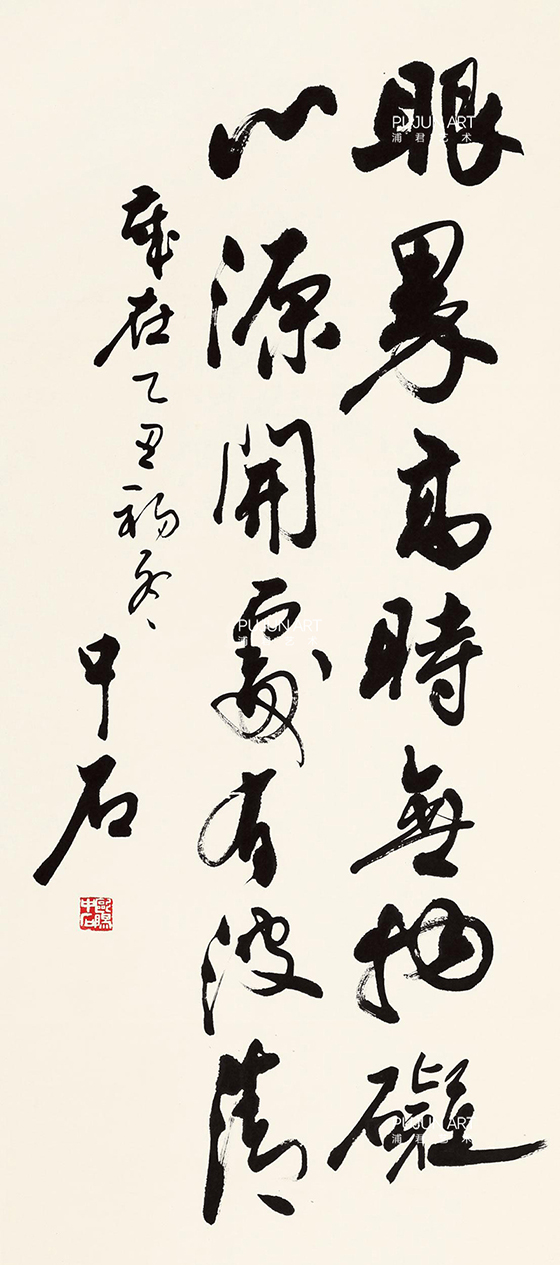 眼界高時無物礙
心源開處有波清
歲在乙丑初冬
中石
歐陽中石
PUJUN ART
浦君艺术
PUJUN ART
浦君艺术
PUJUN ART
浦君艺术